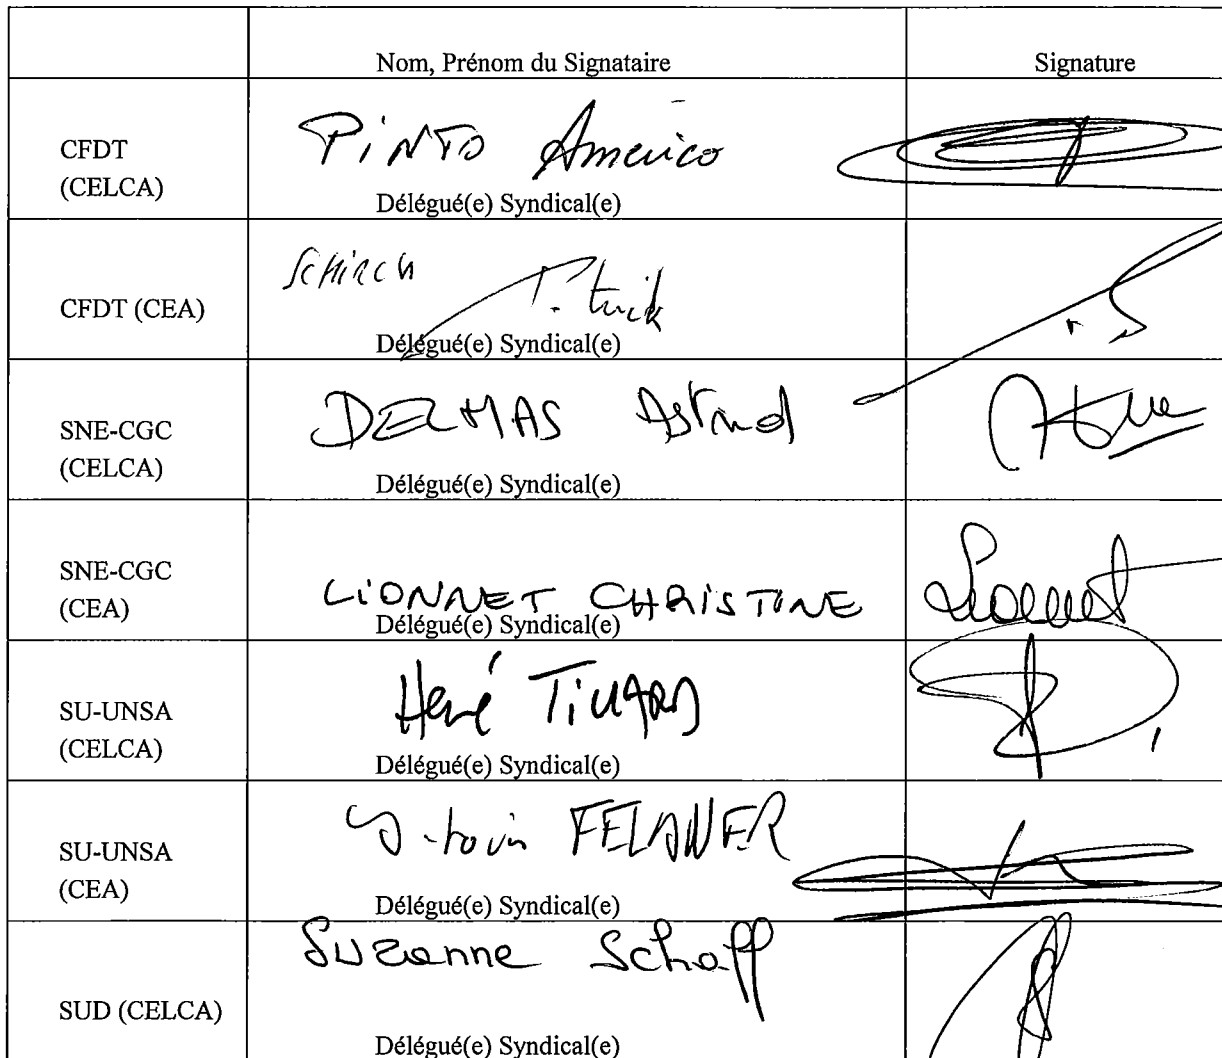 Nom, Prénom du Signataire Signature
CFDT
(CELCA)
PiNTO Americo
Délégué(e) Syndical(e)
CFDT (CEA)
SCHIRCH
Délégué(e) Syndical(e)
SNE-CGC
(CELCA)
DELMAS Astrid
Délégué(e) Syndical(e)
SNE-CGC
(CEA)
LiONNET CHRISTINE
Délégué(e) Syndical(e)
Lionnet
SU-UNSA
(CELCA)
Hervé
Délégué(e) Syndical(e)
SU-UNSA
(CEA)
Délégué(e) Syndical(e)
SUD (CELCA)
Suzanne Schaff
Délégué(e) Syndical(e)